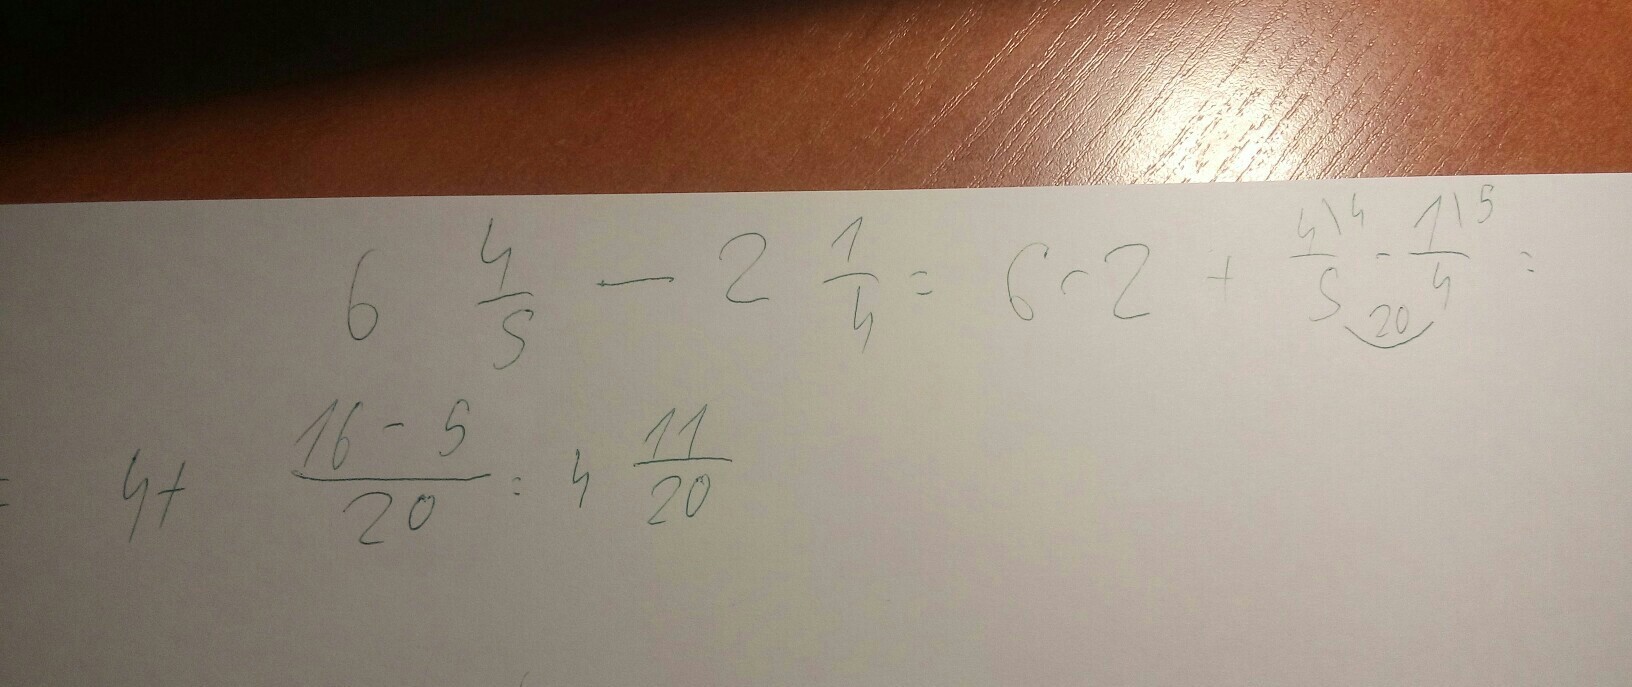 6 4/5 - 2 1/4 = 6 - 2 + 4\4/5 - 1\5/4 =
20
= 4 + 16 - 5/20 = 4 11/20